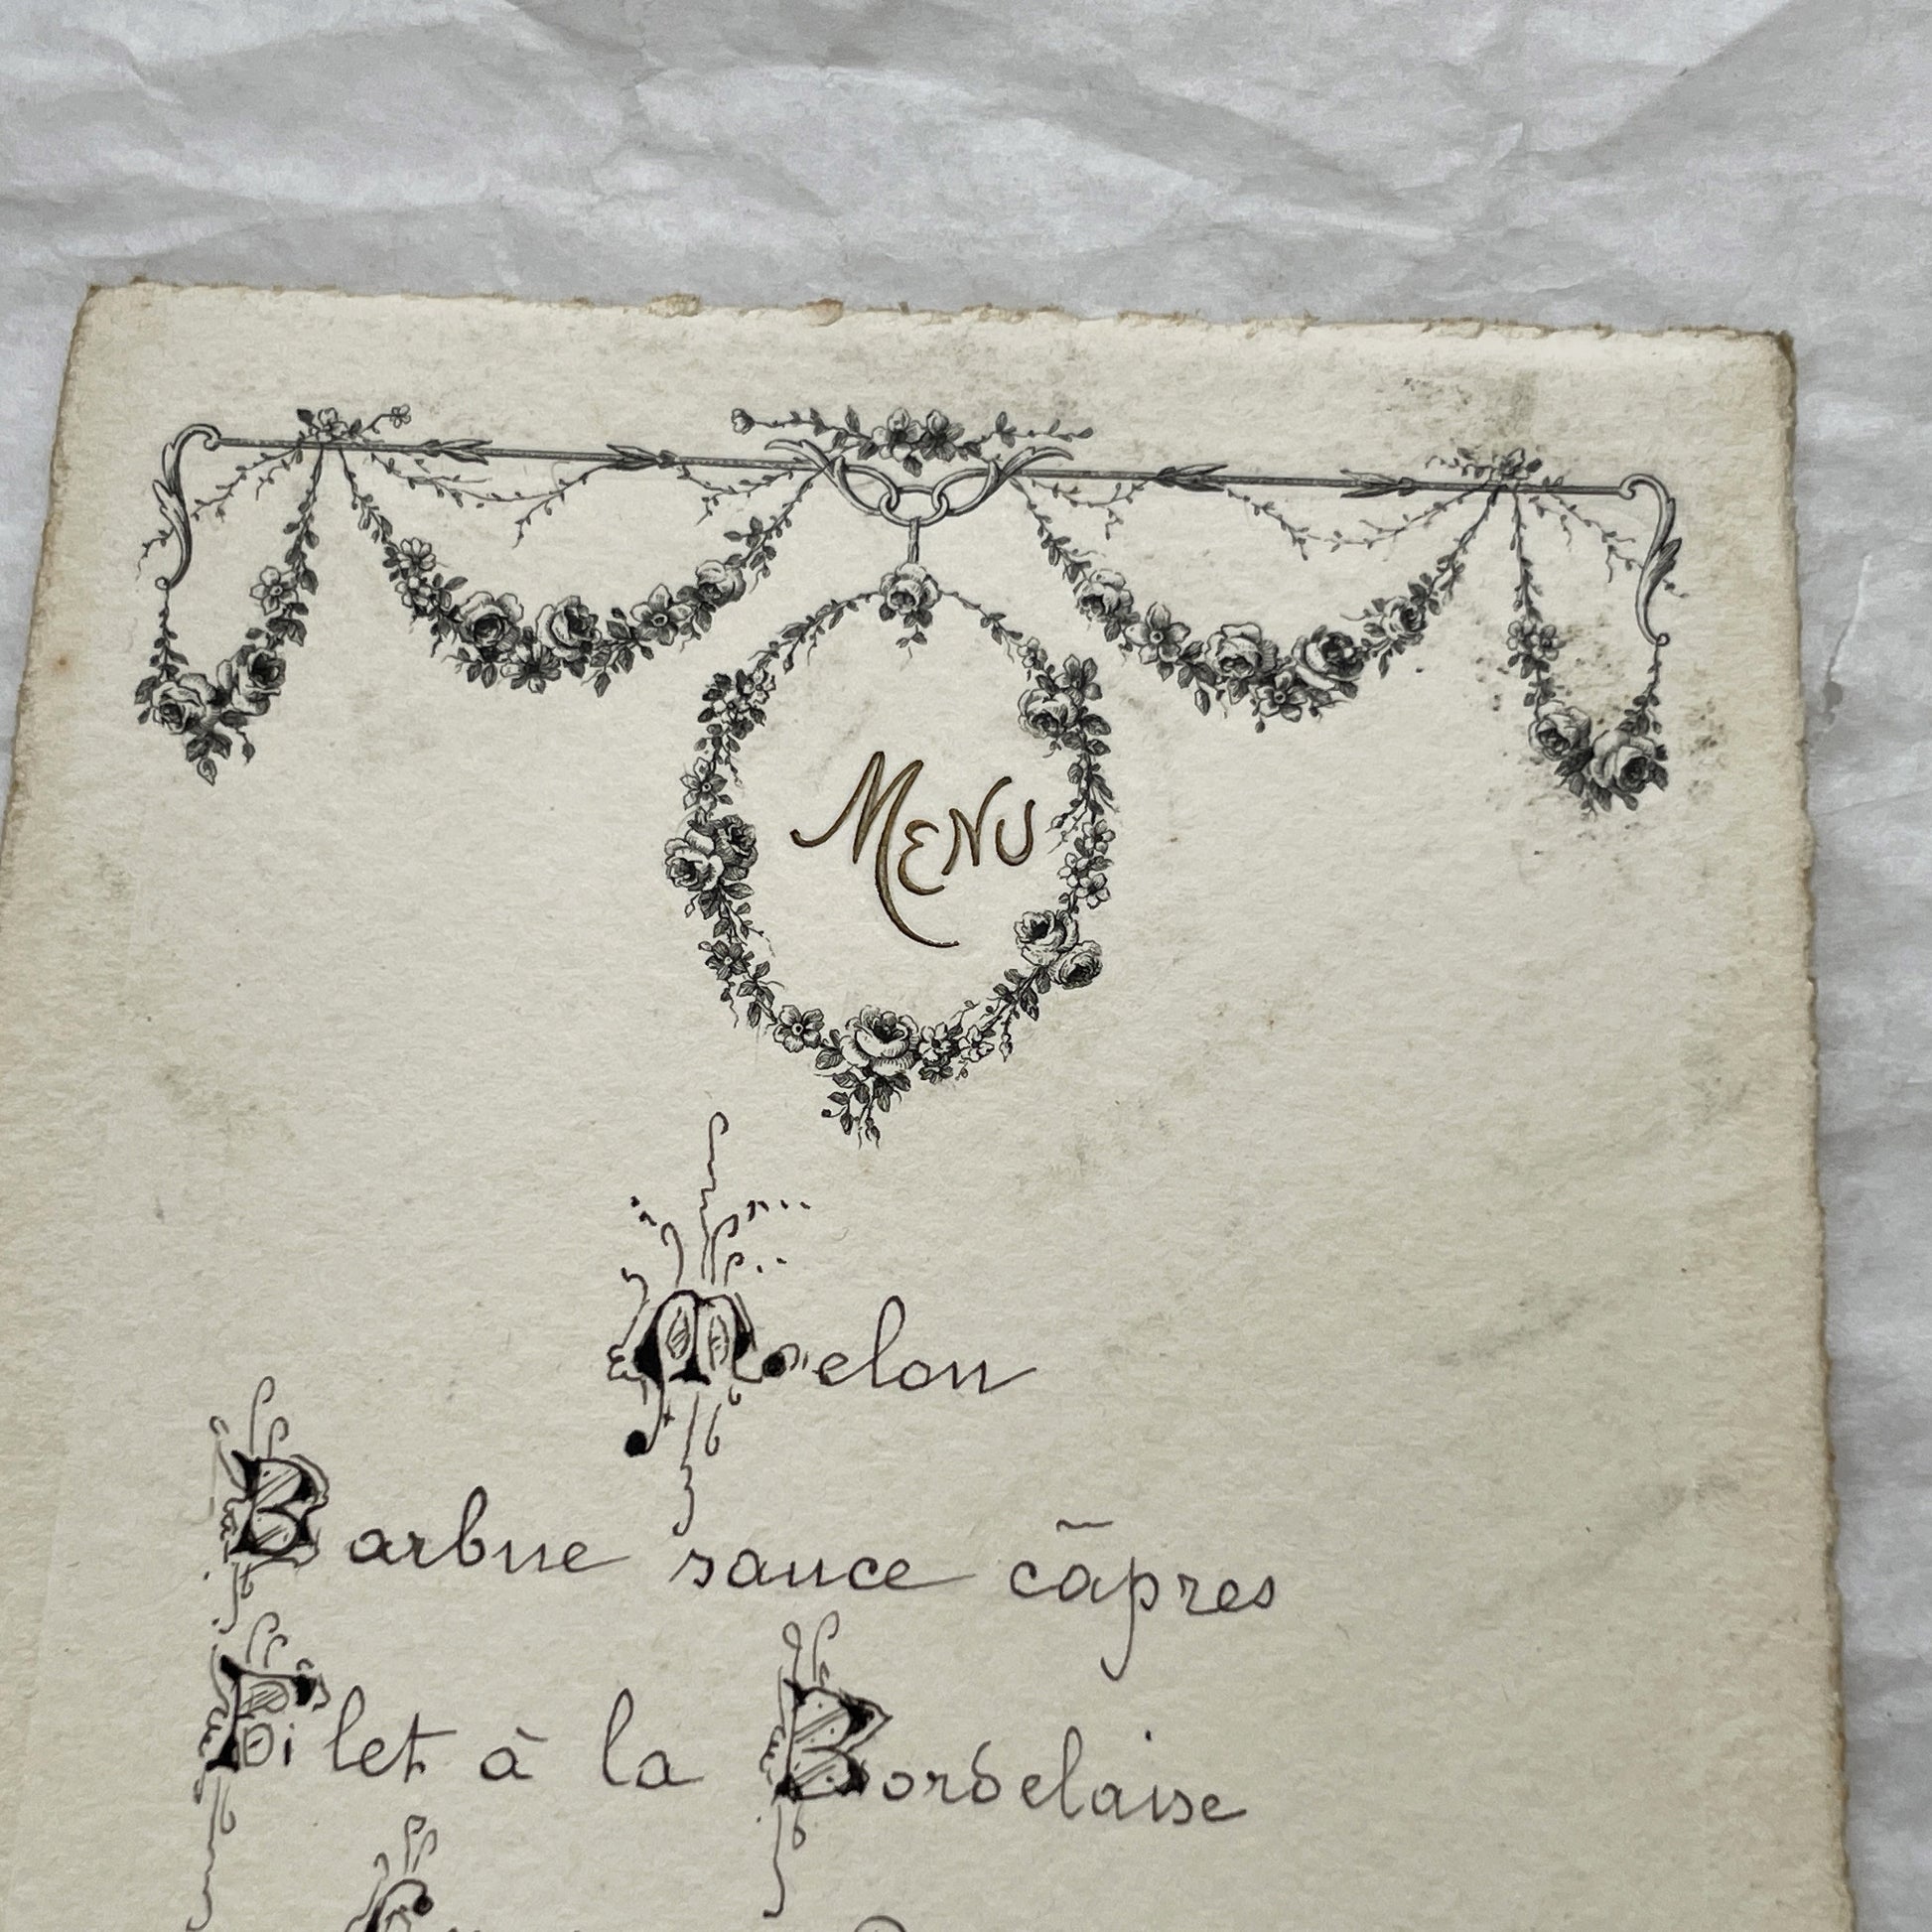 MENU
Melon
Barbue sauce câpres
Filet à la Bordelaise